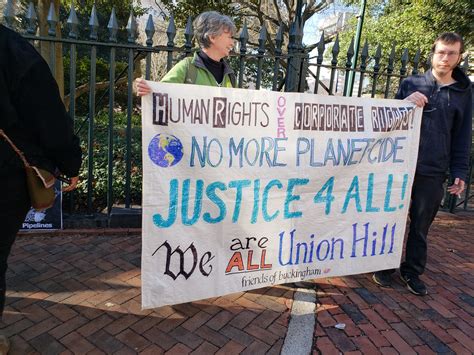 Human Rights OVER CORPORATE RIGHTS!
NO MORE PLANETCIDE
JUSTICE 4 ALL!
We are ALL Union Hill
friends of buckingham
Pipelines